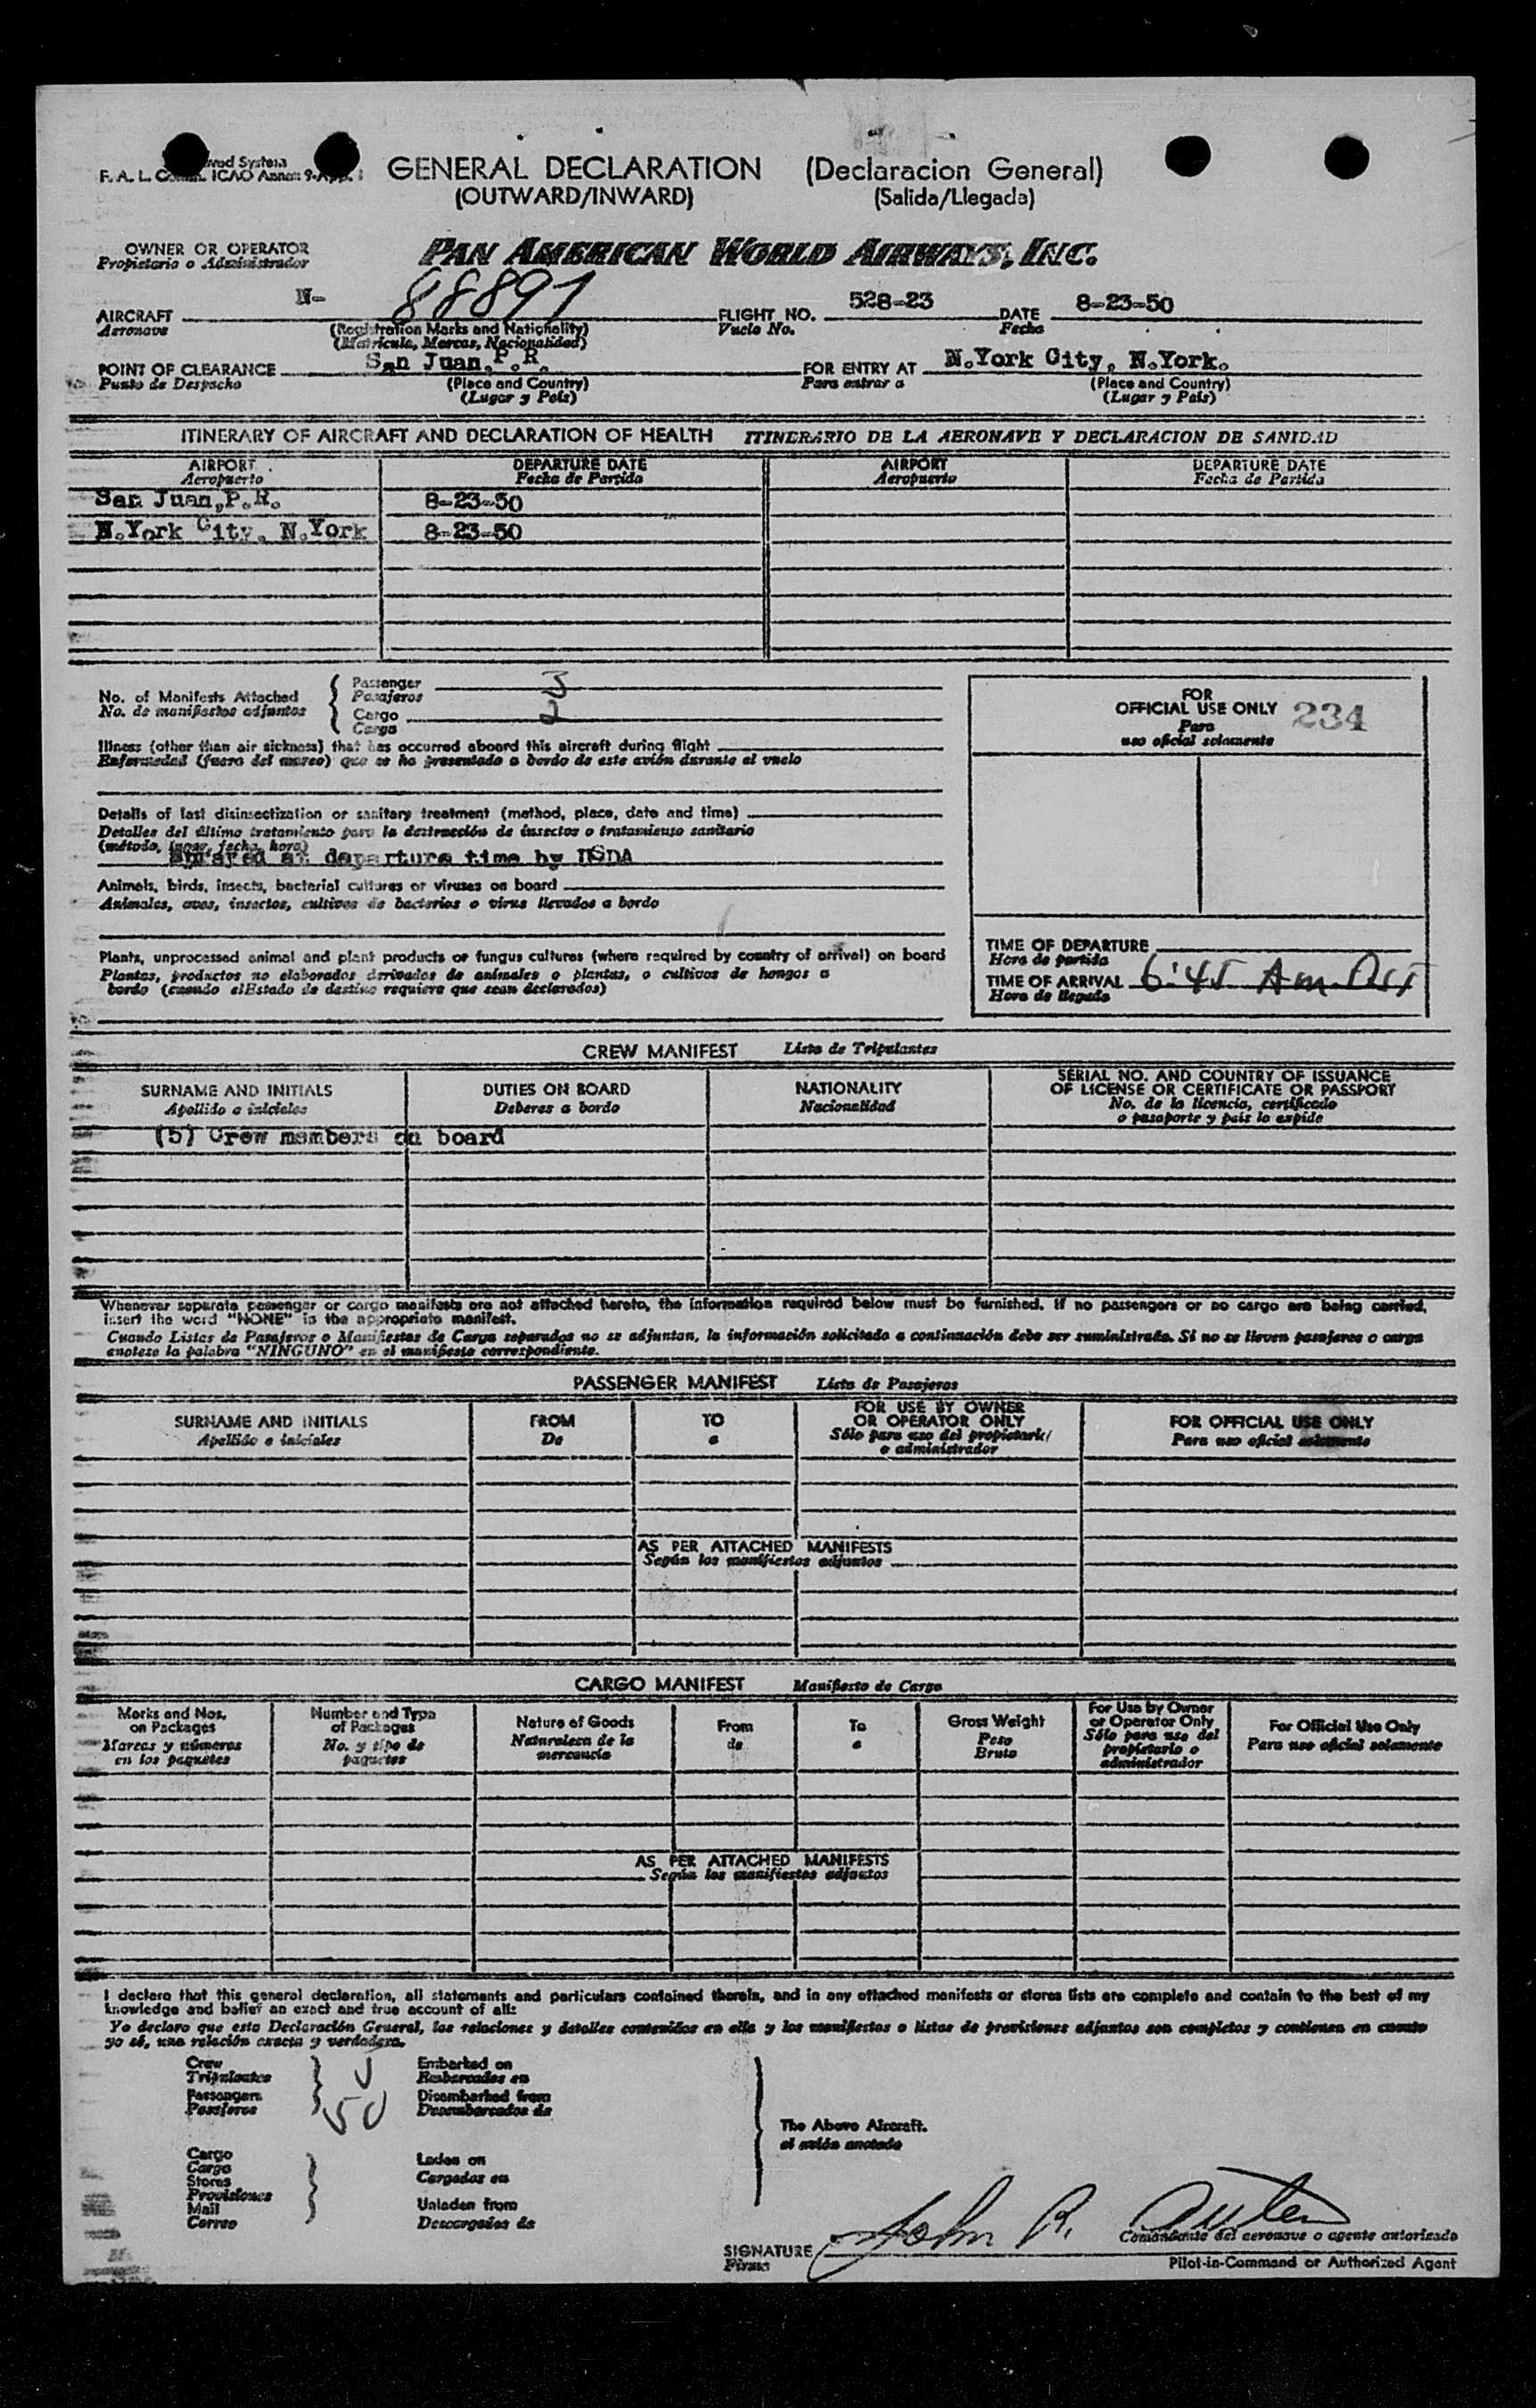 GENERAL DECLARATION (Declaracion General)
(OUTWARD/INWARD) (Salida/Llegada)
F. A. L. ICAO Annex 9-App. 1
OWNER OR OPERATOR PAN AMERICAN WORLD AIRWAYS, INC.
Propietario o Administrador
AIRCRAFT N-88891 FLIGHT NO. 528-23 DATE 8-23-50
Aeronave (Registration Marks and Nationality) Vuelo No. Fecha
(Matricula, Marcas, Nacionalidad)
POINT OF CLEARANCE San Juan,P.R. FOR ENTRY AT N.York City, N.York.
Punto de Despacho (Place and Country) Para entrar a (Place and Country)
(Lugar y País) (Lugar y País)
ITINERARY OF AIRCRAFT AND DECLARATION OF HEALTH ITINERARIO DE LA AERONAVE Y DECLARACION DE SANIDAD
AIRPORT DEPARTURE DATE AIRPORT DEPARTURE DATE
Aeropuerto Fecha de Partida Aeropuerto Fecha de Partida
San Juan,P.R. 8-23-50
N.York City, N.York 8-23-50
No. of Manifests Attached Passenger
No. de manifiestos adjuntos Pasajeros
Cargo 2
Carga
FOR
OFFICIAL USE ONLY 234
Para
uso oficial solamente
Illness (other than air sickness) that has occurred aboard this aircraft during flight
Enfermedad (fuera del mareo) que se ha presentado a bordo de este avión durante el vuelo
Details of last disinsectization or sanitary treatment (method, place, date and time)
Detalles del último tratamiento para la destrucción de insectos o tratamiento sanitario
(método, lugar, fecha, hora)
Sprayed at departure time by USDA
Animals, birds, insects, bacterial cultures or viruses on board
Animales, aves, insectos, cultivos de bacterias o virus llevados a bordo
Plants, unprocessed animal and plant products or fungus cultures (where required by country of arrival) on board
Plantas, productos no elaborados derivados de animales o plantas, o cultivos de hongos a
bordo (cuando elEstado de destino requiera que sean declarados)
TIME OF DEPARTURE
Hora de partida
TIME OF ARRIVAL 6:45 Am
Hora de llegada
CREW MANIFEST Lista de Tripulantes
SURNAME AND INITIALS DUTIES ON BOARD NATIONALITY SERIAL NO. AND COUNTRY OF ISSUANCE
OF LICENSE OR CERTIFICATE OR PASSPORT
Apellido e iniciales Deberes a bordo Nacionalidad No. de la licencia, certificado
o pasaporte y país lo expide
(5) Crew members on board
Whenever separate passenger or cargo manifests are not attached hereto, the information required below must be furnished. If no passengers or no cargo are being carried,
insert the word "NONE" in the appropriate manifest.
Cuando Listas de Pasajeros o Manifiestos de Carga separados no se adjuntan, la información solicitada a continuación debe ser suministrada. Si no se lleven pasajeros o carga
anotese la palabra "NINGUNO" en el manifiesto correspondiente.
PASSENGER MANIFEST Lista de Pasajeros
SURNAME AND INITIALS FROM TO FOR USE BY OWNER
OR OPERATOR ONLY FOR OFFICIAL USE ONLY
Apellido e iniciales De a Sólo para uso del propietark/
o administrador Para uso oficial solamente
AS PER ATTACHED MANIFESTS
Según los manifiestos adjuntos
CARGO MANIFEST Manifiesto de Carga
Marks and Nos.
on Packages
Marcas y números
en los paquetes
Number and Type
of Packages
No. y tipo de
paquetes
Nature of Goods
Naturaleza de la
mercancía
From
de
To
a
Gross Weight
Peso
Bruto
For Use by Owner
or Operator Only
Sólo para uso del
propietario o
administrador
For Official Use Only
Para uso oficial solamente
AS PER ATTACHED MANIFESTS
Según los manifiestos adjuntos
I declare that this general declaration, all statements and particulars contained therein, and in any attached manifests or stores lists are complete and contain to the best of my
knowledge and belief an exact and true account of all:
Yo declaro que esta Declaración General, las relaciones y detalles contenidos en ella y los manifiestos o listas de provisiones adjuntos son completos y contienen en cuanto
yo sé, una relación exacta y verdadera.
Crew 5 Embarked on
Tripulantes Embarcados en
Passengers 50 Disembarked from
Pasajeros Desembarcados de
The Above Aircraft.
el avión anotado
Cargo Laden on
Carga Cargados en
Stores
Provisiones
Mail Unladen from
Correo Descargados de
SIGNATURE John R.
Firma
Comandante del aeronave o agente autorizado
Pilot-in-Command or Authorized Agent